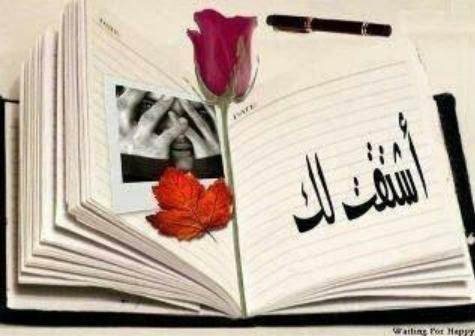 DATE:
DATE:
أشتقت لك
Waiting For Happy